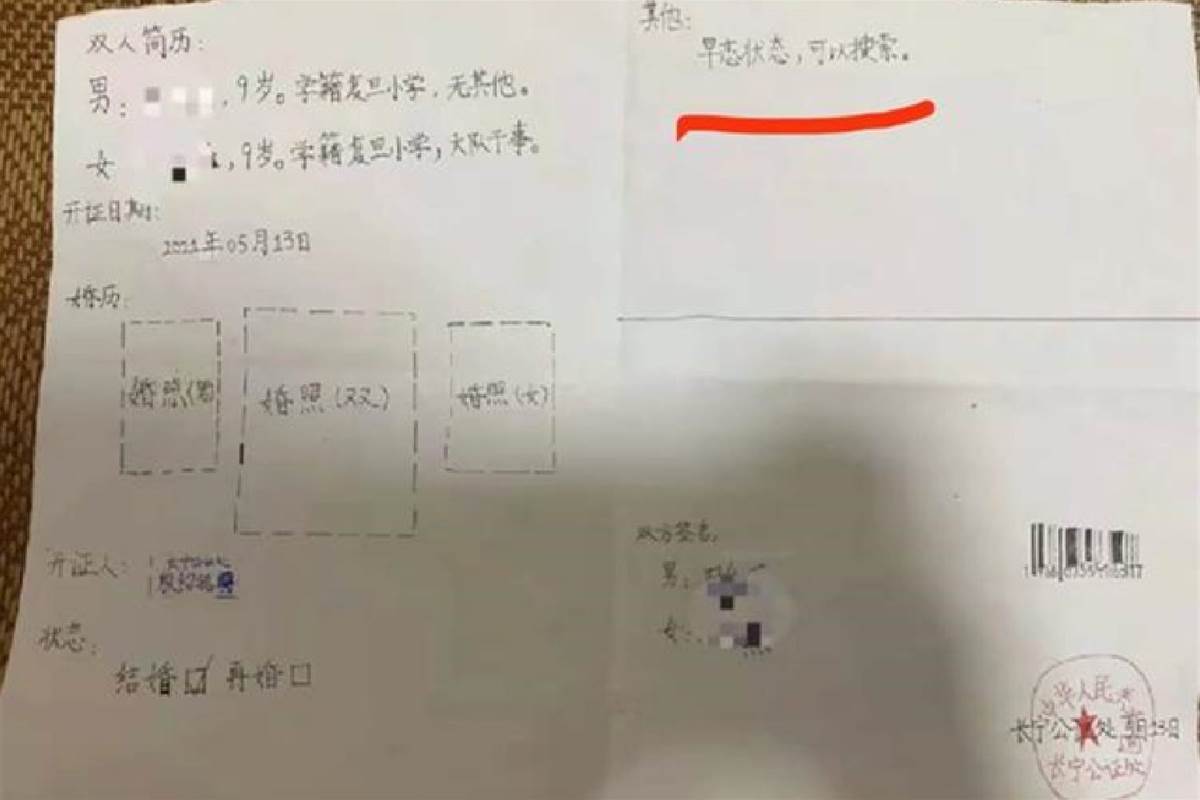 双人简历:
男: ,9岁。学籍复旦小学,无其他。
女 ,9岁。学籍复旦小学,大队干事。
开证日期:
2021年05月13日
婚历:
婚照(男)
婚照(双人)
婚照(女)
开证人:
状态:
结婚☑ 再婚□
其他:
早恋状态,可以搜索。
双方签名:
男:
女:
中华人民共
长宁公证处 13日
长宁公证处